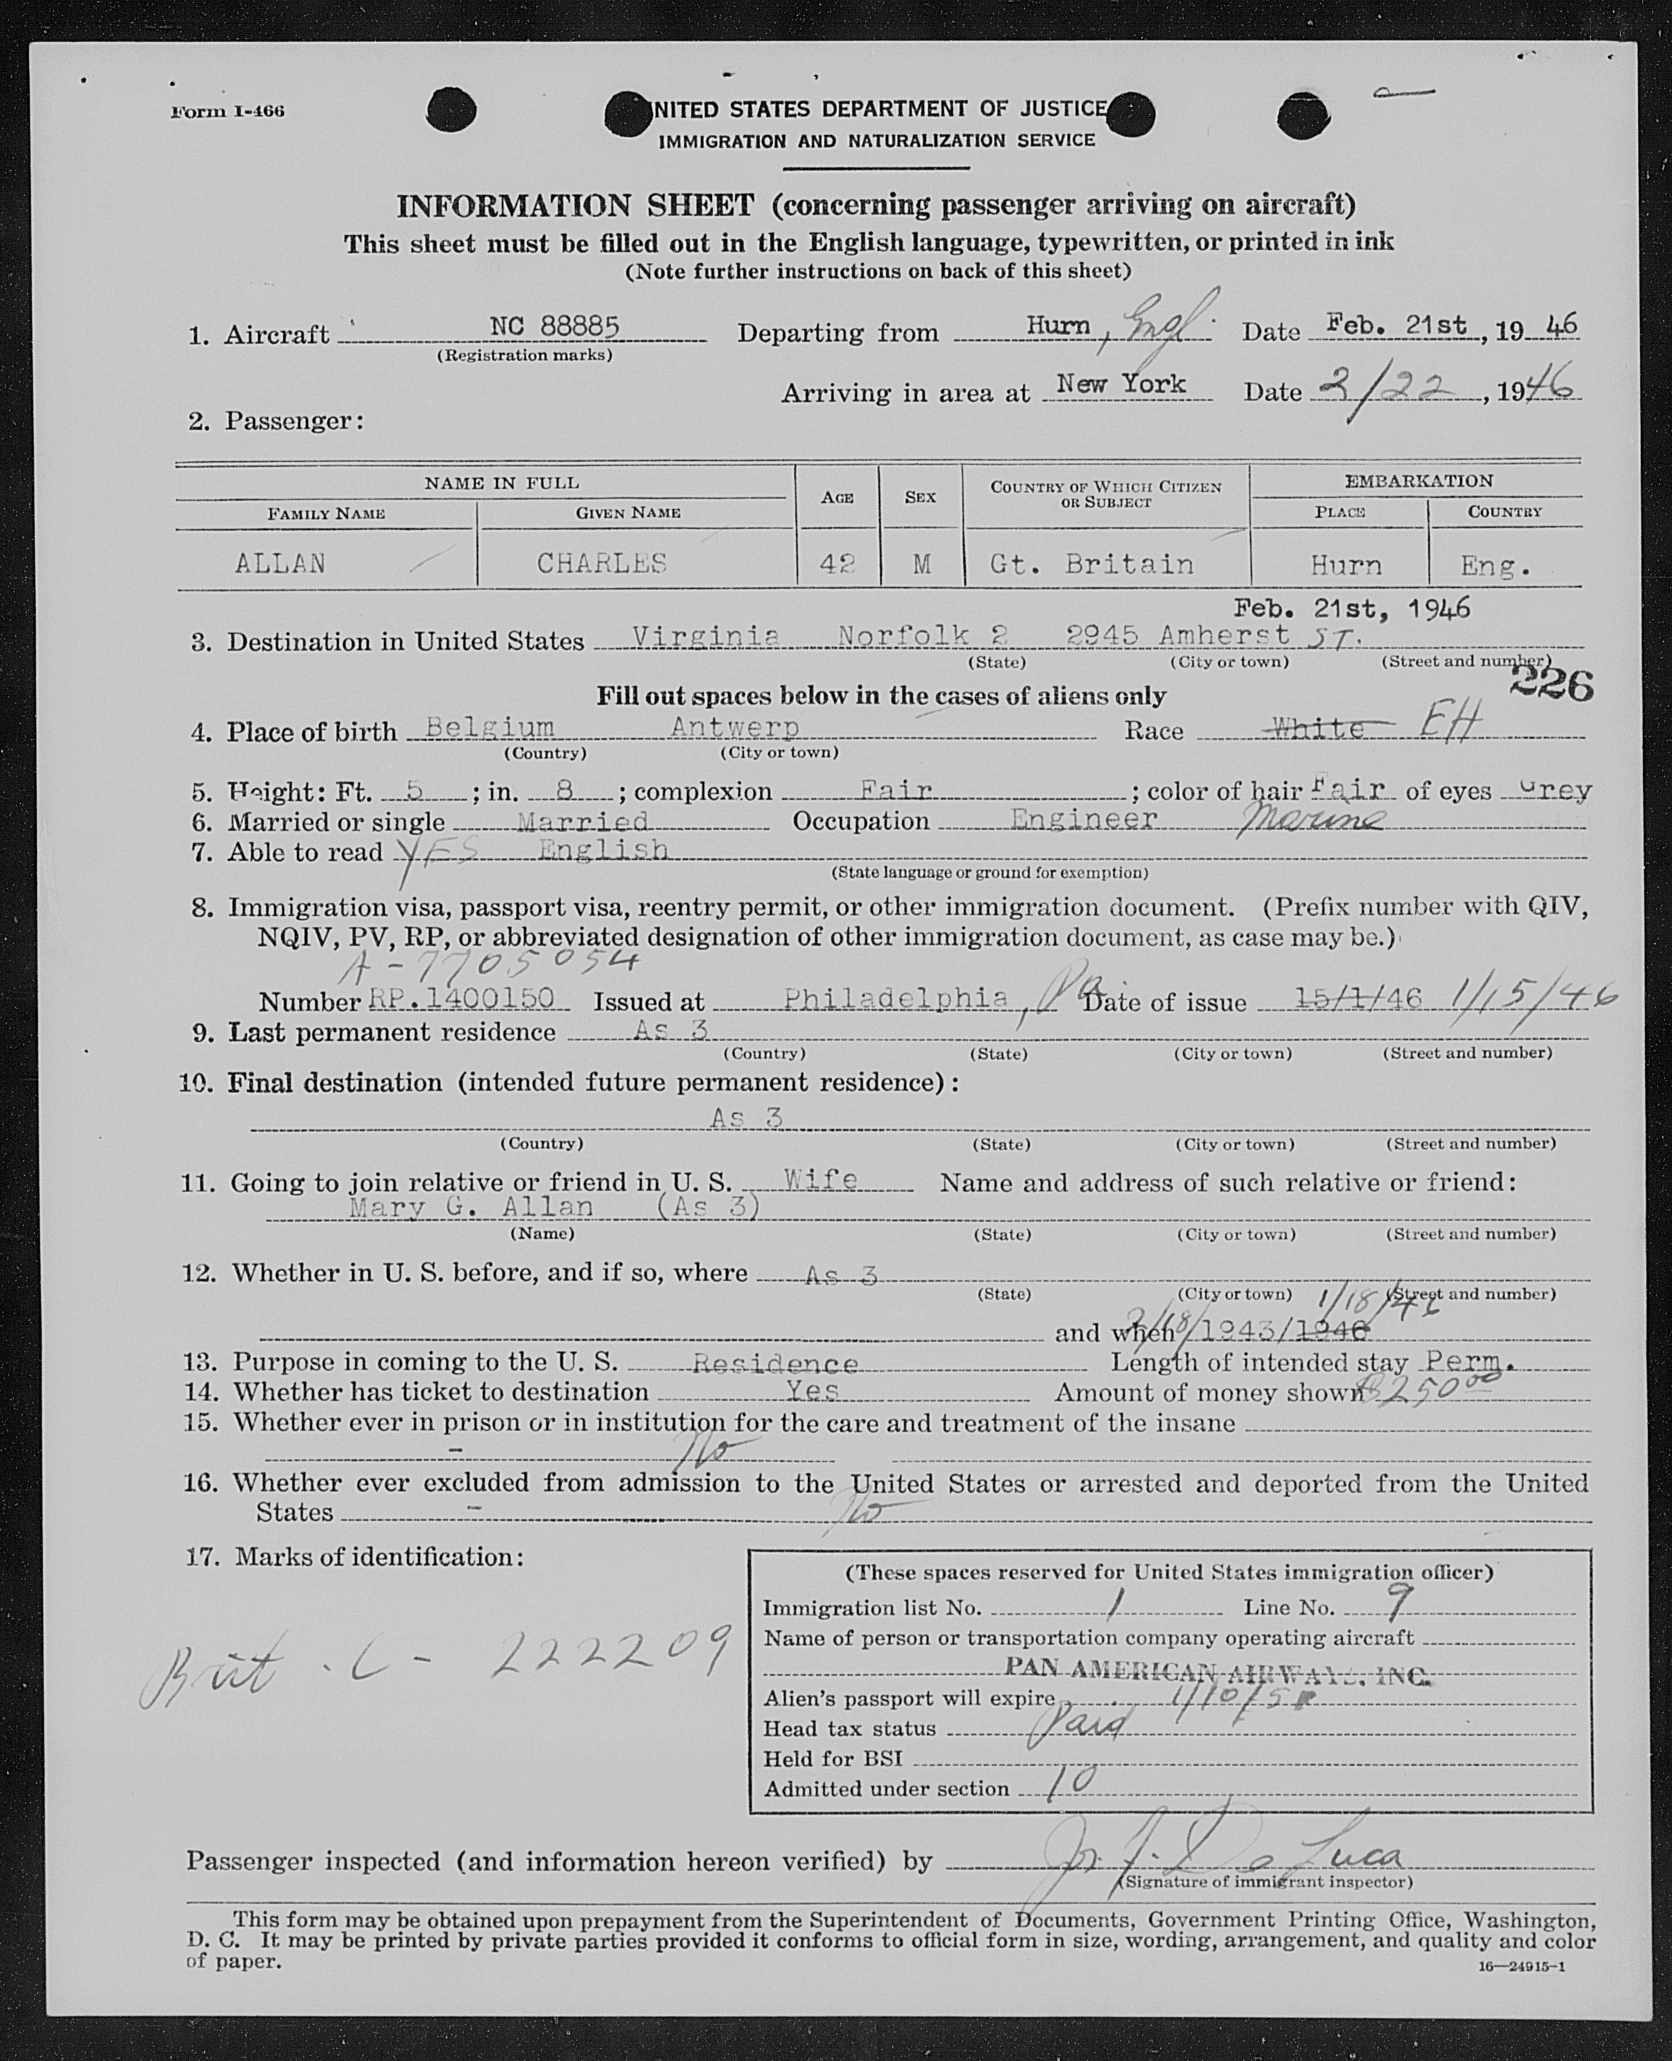 Form I-466
UNITED STATES DEPARTMENT OF JUSTICE
IMMIGRATION AND NATURALIZATION SERVICE
INFORMATION SHEET (concerning passenger arriving on aircraft)
This sheet must be filled out in the English language, typewritten, or printed in ink
(Note further instructions on back of this sheet)
1. Aircraft NC 88885 Departing from Hurn, Engl. Date Feb. 21st, 19 46
(Registration marks)
Arriving in area at New York Date 2/22, 1946
2. Passenger:
NAME IN FULL AGE SEX COUNTRY OF WHICH CITIZEN OR SUBJECT EMBARKATION
FAMILY NAME GIVEN NAME PLACE COUNTRY
ALLAN CHARLES 42 M Gt. Britain Hurn Eng.
Feb. 21st, 1946
3. Destination in United States Virginia Norfolk 2 2945 Amherst ST.
(State) (City or town) (Street and number)
226
Fill out spaces below in the cases of aliens only
4. Place of birth Belgium Antwerp Race White EH
(Country) (City or town)
5. Height: Ft. 5; in. 8; complexion Fair; color of hair Fair of eyes Grey
6. Married or single Married Occupation Engineer Marine
7. Able to read YES English
(State language or ground for exemption)
8. Immigration visa, passport visa, reentry permit, or other immigration document. (Prefix number with QIV,
NQIV, PV, RP, or abbreviated designation of other immigration document, as case may be.)
A-7705054
Number RP.1400150 Issued at Philadelphia, Pa Date of issue 15/1/46 1/15/46
9. Last permanent residence As 3
(Country) (State) (City or town) (Street and number)
10. Final destination (intended future permanent residence):
As 3
(Country) (State) (City or town) (Street and number)
11. Going to join relative or friend in U. S. Wife Name and address of such relative or friend:
Mary G. Allan (As 3)
(Name) (State) (City or town) (Street and number)
12. Whether in U. S. before, and if so, where As 3
(State) (City or town) (Street and number)
1/18/46
and when 2/18/1943/1946
13. Purpose in coming to the U. S. Residence Length of intended stay Perm.
14. Whether has ticket to destination Yes Amount of money shown $250.00
15. Whether ever in prison or in institution for the care and treatment of the insane
- No
16. Whether ever excluded from admission to the United States or arrested and deported from the United
States - No
17. Marks of identification:
(These spaces reserved for United States immigration officer)
Immigration list No. 1 Line No. 9
Name of person or transportation company operating aircraft
Brit. C - 222209
PAN AMERICAN AIRWAYS, INC.
Alien's passport will expire 1/10/5
Head tax status Paid
Held for BSI
Admitted under section 10
Passenger inspected (and information hereon verified) by J. De Luca
(Signature of immigrant inspector)
This form may be obtained upon prepayment from the Superintendent of Documents, Government Printing Office, Washington,
D. C. It may be printed by private parties provided it conforms to official form in size, wording, arrangement, and quality and color
of paper.
16—24915-1